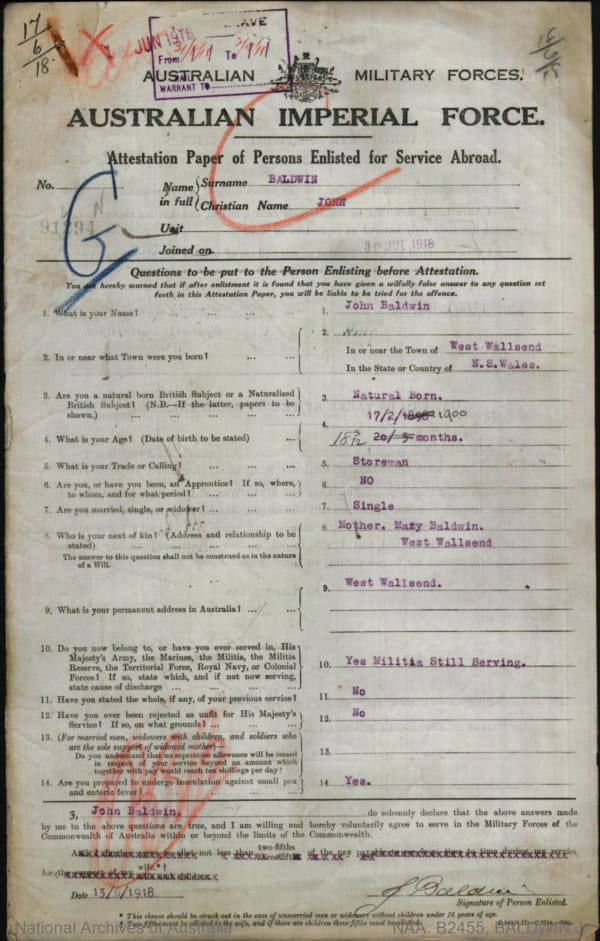 17/6/18.
JUN 1918
LEAVE
From To
WARRANT TO
AUSTRALIAN MILITARY FORCES.
AUSTRALIAN IMPERIAL FORCE.
Attestation Paper of Persons Enlisted for Service Abroad.
No.
91294
G
Name in full
Surname BALDWIN
Christian Name JOHN
Unit
Joined on 30 JUL 1918
Questions to be put to the Person Enlisting before Attestation.
You are hereby warned that if after enlistment it is found that you have given a wilfully false answer to any question set
forth in this Attestation Paper, you will be liable to be tried for the offence.
1. What is your Name? ... ... ... ...
1. John Baldwin
2. In or near what Town were you born? ... ...
2.
In or near the Town of West Wallsend
In the State or Country of N.S.Wales.
3. Are you a natural born British Subject or a Naturalized
British Subject? (N.B.—If the latter, papers to be
shown.) ... ... ... ... ...
3. Natural Born.
4. What is your Age? (Date of birth to be stated) ...
17/2/1898 1900
4. 18 5/12 20/5 months.
5. What is your Trade or Calling? ... ... ...
5. Storeman
6. Are you, or have you been, an Apprentice? If so, where,
to whom, and for what period? ... ... ...
6. NO
7. Are you married, single, or widower? ... ...
7. Single
8. Who is your next of kin? (Address and relationship to be
stated) ... ... ... ...
The answer to this question shall not be construed as in the nature
of a Will.
8. Mother. Mary Baldwin.
West Wallsend
9. What is your permanent address in Australia? ...
9. West Wallsend.
10. Do you now belong to, or have you ever served in, His
Majesty's Army, the Marines, the Militia, the Militia
Reserve, the Territorial Force, Royal Navy, or Colonial
Forces? If so, state which, and if not now serving,
state cause of discharge ... ... ... ...
10. Yes Militia Still Serving.
11. Have you stated the whole, if any, of your previous service?
11. No
12. Have you ever been rejected as unfit for His Majesty's
Service? If so, on what grounds? ... ...
12. No
13. (For married men, widowers with children, and soldiers who
are the sole support of widowed mother)—
Do you understand that no separation allowance will be issued
in respect of your service beyond an amount which
together with pay would reach ten shillings per day?
13.
14. Are you prepared to undergo inoculation against small pox
and enteric fever? ... ... ... ...
14. Yes.
I, John Baldwin, do solemnly declare that the above answers made
by me to the above questions are true, and I am willing and hereby voluntarily agree to serve in the Military Forces of the
Commonwealth of Australia within or beyond the limits of the Commonwealth.
And I further agree to allot not less than two-fifths three-fifths of the pay payable to me from time to time during my service
for the support of my wife
Date 13/6/1918
J Baldwin
Signature of Person Enlisted.
* This clause should be struck out in the case of unmarried men or widowers without children under 16 years of age.
† Two-fifths must be allotted to the wife, and if there are children three-fifths must be allotted.
National Archives of Australia
NAA: B2455, BALDWIN J